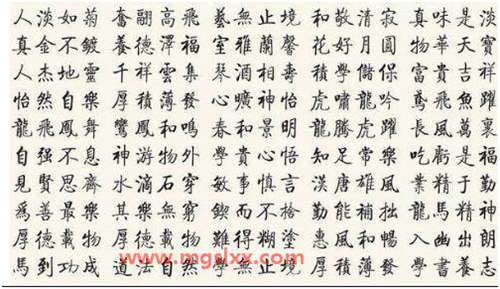 人淡如菊 奮翮高飛 藝無止境 和敬清寂 真味是淡
真金不鍍 養德澤福 室雅蘭馨 花好月圓 物華天寶
人杰地靈 千祥雲集 琴酒相壽 積學儲保 富貴吉祥
怡然自樂 厚積薄發 心曠神怡 虎嘯龍吟 鳶飛魚躍
龍飛鳳舞 鸞鳳和鳴 春和景明 龍騰虎躍 長風萬裏
自强不息 神游物外 學貴心悟 知足常樂 吃虧是福
見賢思齊 水滴石穿 敏事慎言 漢唐雄風 業精于勤
爲善最樂 其樂無窮 鍥而不捨 勤能補拙 龍馬精神
厚德載物 厚德載物 難得糊塗 惠風和暢 入幽出朗
www.mgslxx.com
馬到功成 道法自然 學無止境 厚積薄發 學書志